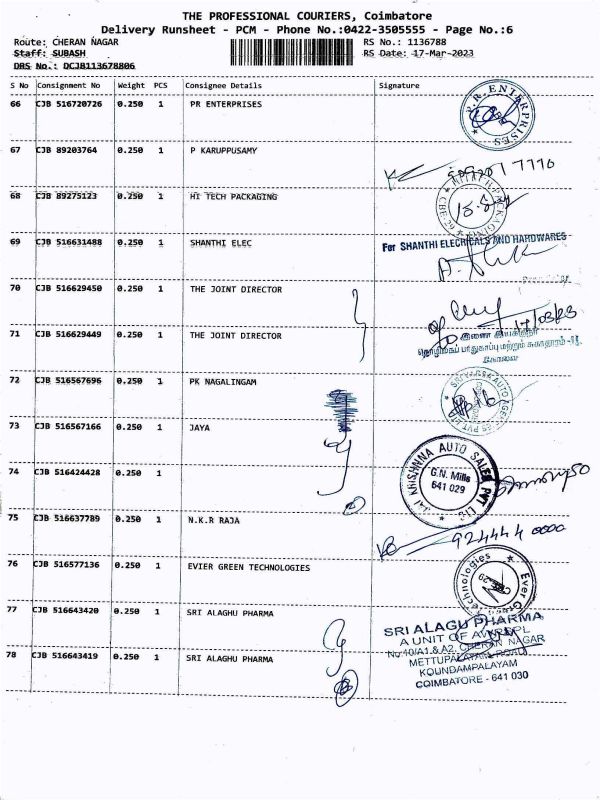 THE PROFESSIONAL COURIERS, Coimbatore
Delivery Runsheet - PCM - Phone No.:0422-3505555 - Page No.:6
Route: CHERAN NAGAR RS No.: 1136788
Staff: SUBASH RS Date: 17-Mar-2023
DRS No.: DCJB113678806
S No Consignment No Weight PCS Consignee Details Signature
66 CJB 516720726 0.250 1 PR ENTERPRISES
P.R. ENTERPRISES
67 CJB 89203764 0.250 1 P KARUPPUSAMY
68 CJB 89275123 0.250 1 HI TECH PACKAGING
69 CJB 516631488 0.250 1 SHANTHI ELEC
For SHANTHI ELECRICALS AND HARDWARES
70 CJB 516629450 0.250 1 THE JOINT DIRECTOR
17/03/23
71 CJB 516629449 0.250 1 THE JOINT DIRECTOR
இணை இயக்குநர்
தொழிலகப் பாதுகாப்பு மற்றும் சுகாதாரம்
கோவை
72 CJB 516567696 0.250 1 PK NAGALINGAM
73 CJB 516567166 0.250 1 JAYA
74 CJB 516424428 0.250 1
JAI KRISHNNA AUTO SALES PVT LTD.
G.N. Mills
641 029
75 CJB 516637789 0.250 1 N.K.R RAJA
924444 0000
76 CJB 516577136 0.250 1 EVIER GREEN TECHNOLOGIES
77 CJB 516643420 0.250 1 SRI ALAGHU PHARMA
78 CJB 516643419 0.250 1 SRI ALAGHU PHARMA
SRI ALAGU PHARMA
A UNIT OF
No:40/A1 & A2, CHERAN NAGAR
METTUPALAYAM ROAD
KOUNDAMPALAYAM
COIMBATORE - 641 030